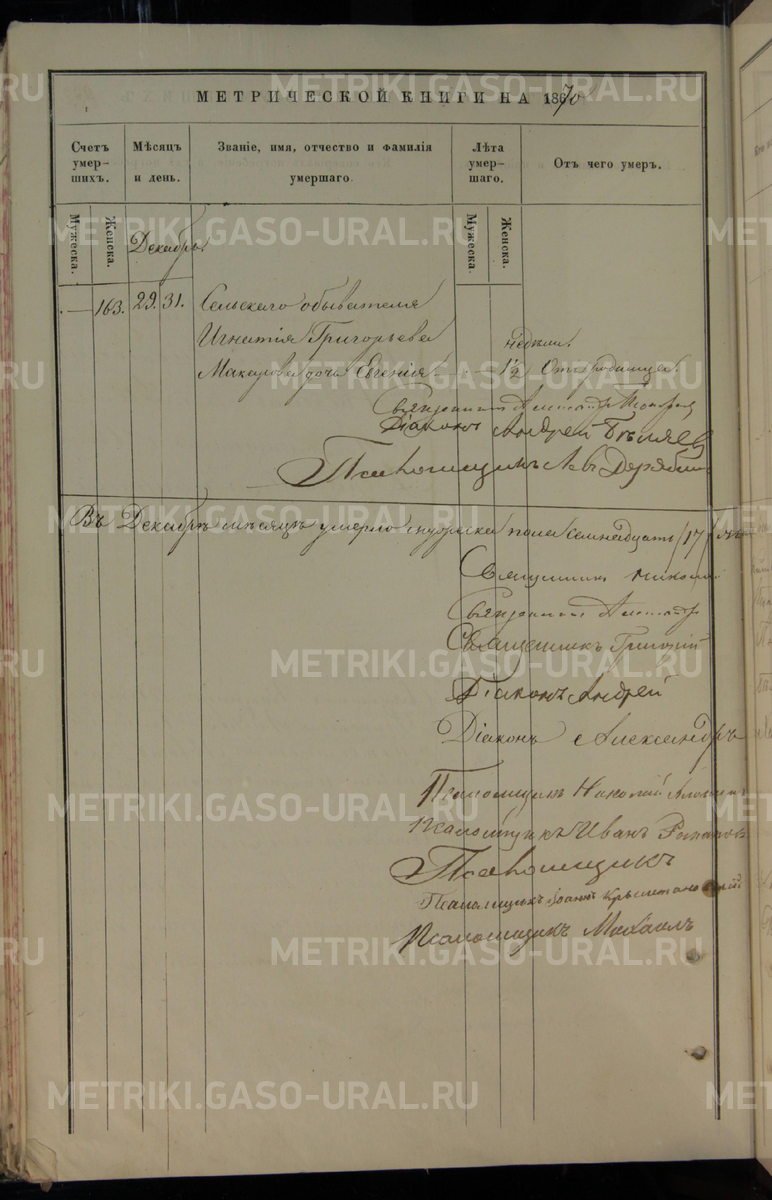 МЕТРИЧЕСКОЙ КНИГИ НА 1870
Счетъ умерших. Мѣсяцъ и день. Званіе, имя, отчество и фамилія умершаго. Лѣта умершаго. Отъ чего умеръ.
Мужеска. Женска. Мужеска. Женска.
Декабрь
— 163. 29. 31. Сельскаго обывателя
Игнатія Григорьева недѣли.
Макарова дочь Евгенія 1½ Отъ родимца.
Священникъ
Діаконъ Андрей Бѣляев
Псаломщикъ Левъ Дерябин
Въ Декабрѣ мѣсяцѣ умерло мужеска пола семнадцать /17/
Священникъ Никола
Священникъ
Священникъ Григорій
Діаконъ Андрей
Діаконъ Александръ
Псаломщикъ Николай
Псаломщикъ Иванъ
Псаломщикъ
Псаломщикъ Іоаннъ
Псаломщикъ Михаилъ
METRIKI.GASO-URAL.RU